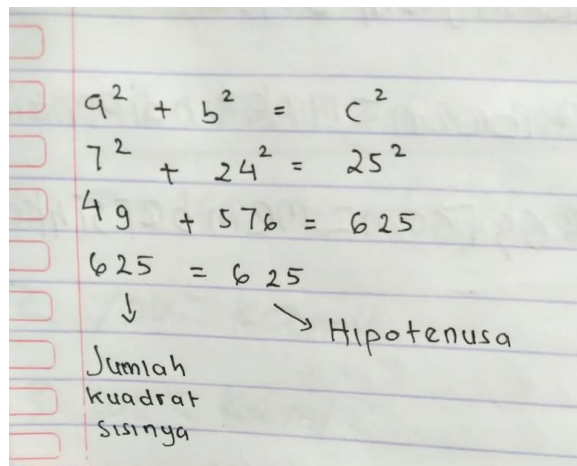 a² + b² = c²
7² + 24² = 25²
49 + 576 = 625
625 = 625
↓ ↘ Hipotenusa
Jumlah
kuadrat
sisinya